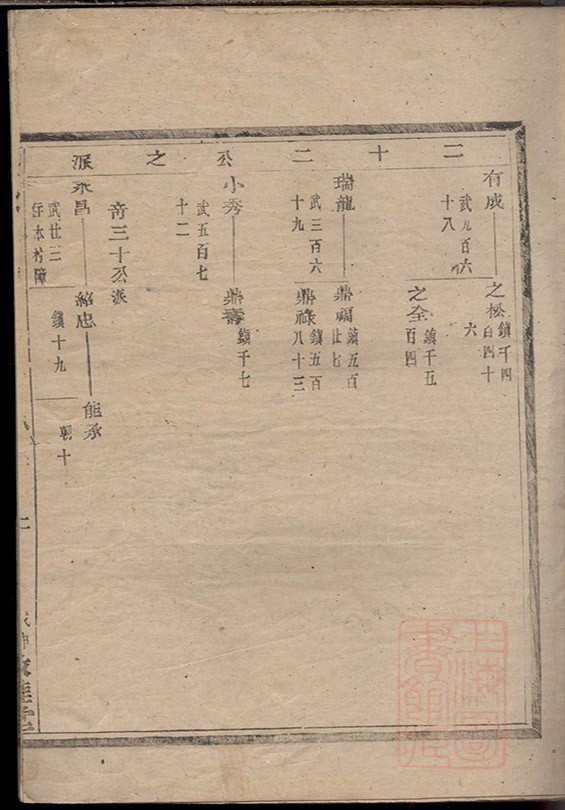 二十二公之派
有成
武九百六
十八
之松
鎮千四
百四十
六
之全
鎮千五
百四
瑞龍
武三百六
十九
鼎福
鎮五百
廿七
鼎祿
鎮五百
八十三
小秀
武五百七
十二
鼎壽
鎮千七
奇三十公派
永昌
武廿三
仔本村障
紹忠
鎮十九
能承
朝十
二
上海圖書館藏